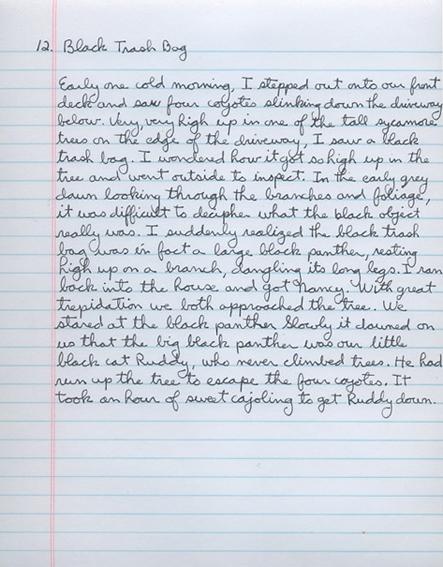 12. Black Trash Bag
Early one cold morning, I stepped out onto our front
deck and saw four coyotes slinking down the driveway
below. Very, very high up in one of the tall sycamore
trees on the edge of the driveway, I saw a black
trash bag. I wondered how it got so high up in the
tree and went outside to inspect. In the early grey
dawn looking through the branches and foliage,
it was difficult to decipher what the black object
really was. I suddenly realized the black trash
bag was in fact a large black panther, resting
high up on a branch, dangling its long legs. I ran
back into the house and got Nancy. With great
trepidation we both approached the tree. We
stared at the black panther. Slowly it dawned on
us that the big black panther was our little
black cat Ruddy, who never climbed trees. He had
run up the tree to escape the four coyotes. It
took an hour of sweet cajoling to get Ruddy down.